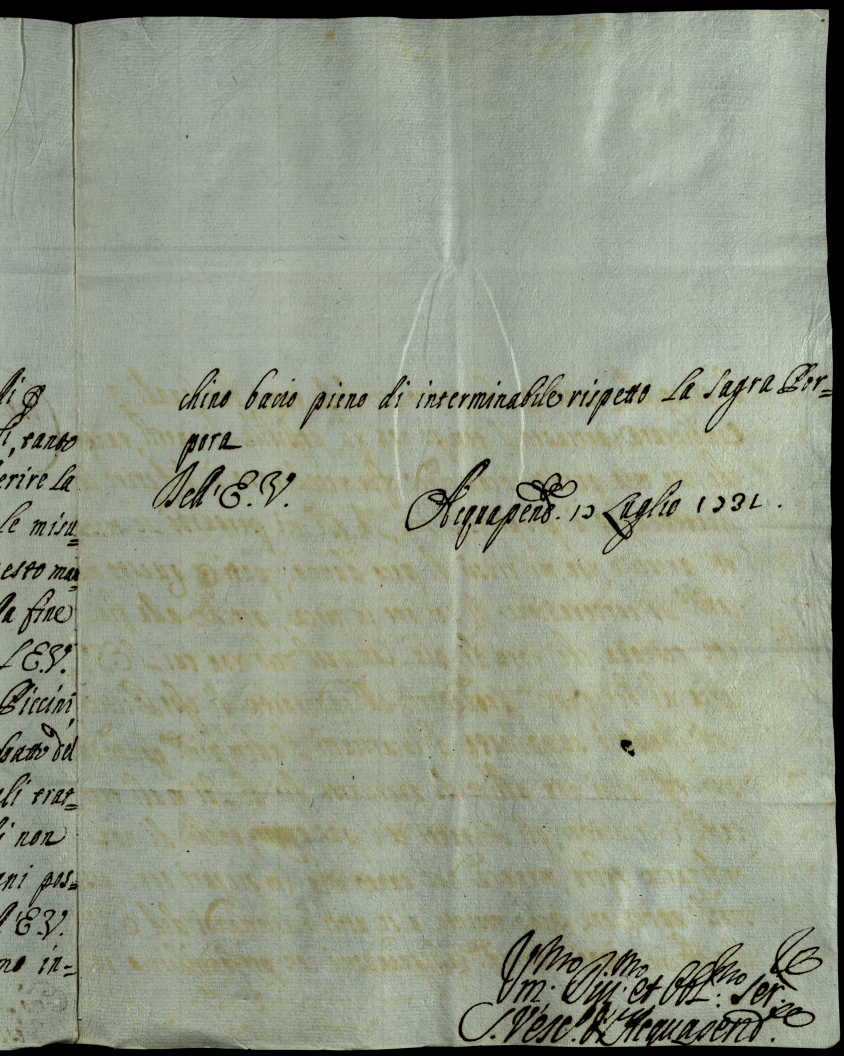 di p
li, tanto
erire la
le misu=
esto man
la fine
L'E.V.
Piccini
del
li trat=
i non
ni pos=
l'E.V.
mo in=
chino bacio pieno di interminabile rispetto La Sagra Por=
pora
Dell'E.V.
Acquapend. 13 Luglio 1731.
Um.mo et Obl.mo Ser.
Vesc.o d'Acquapend.